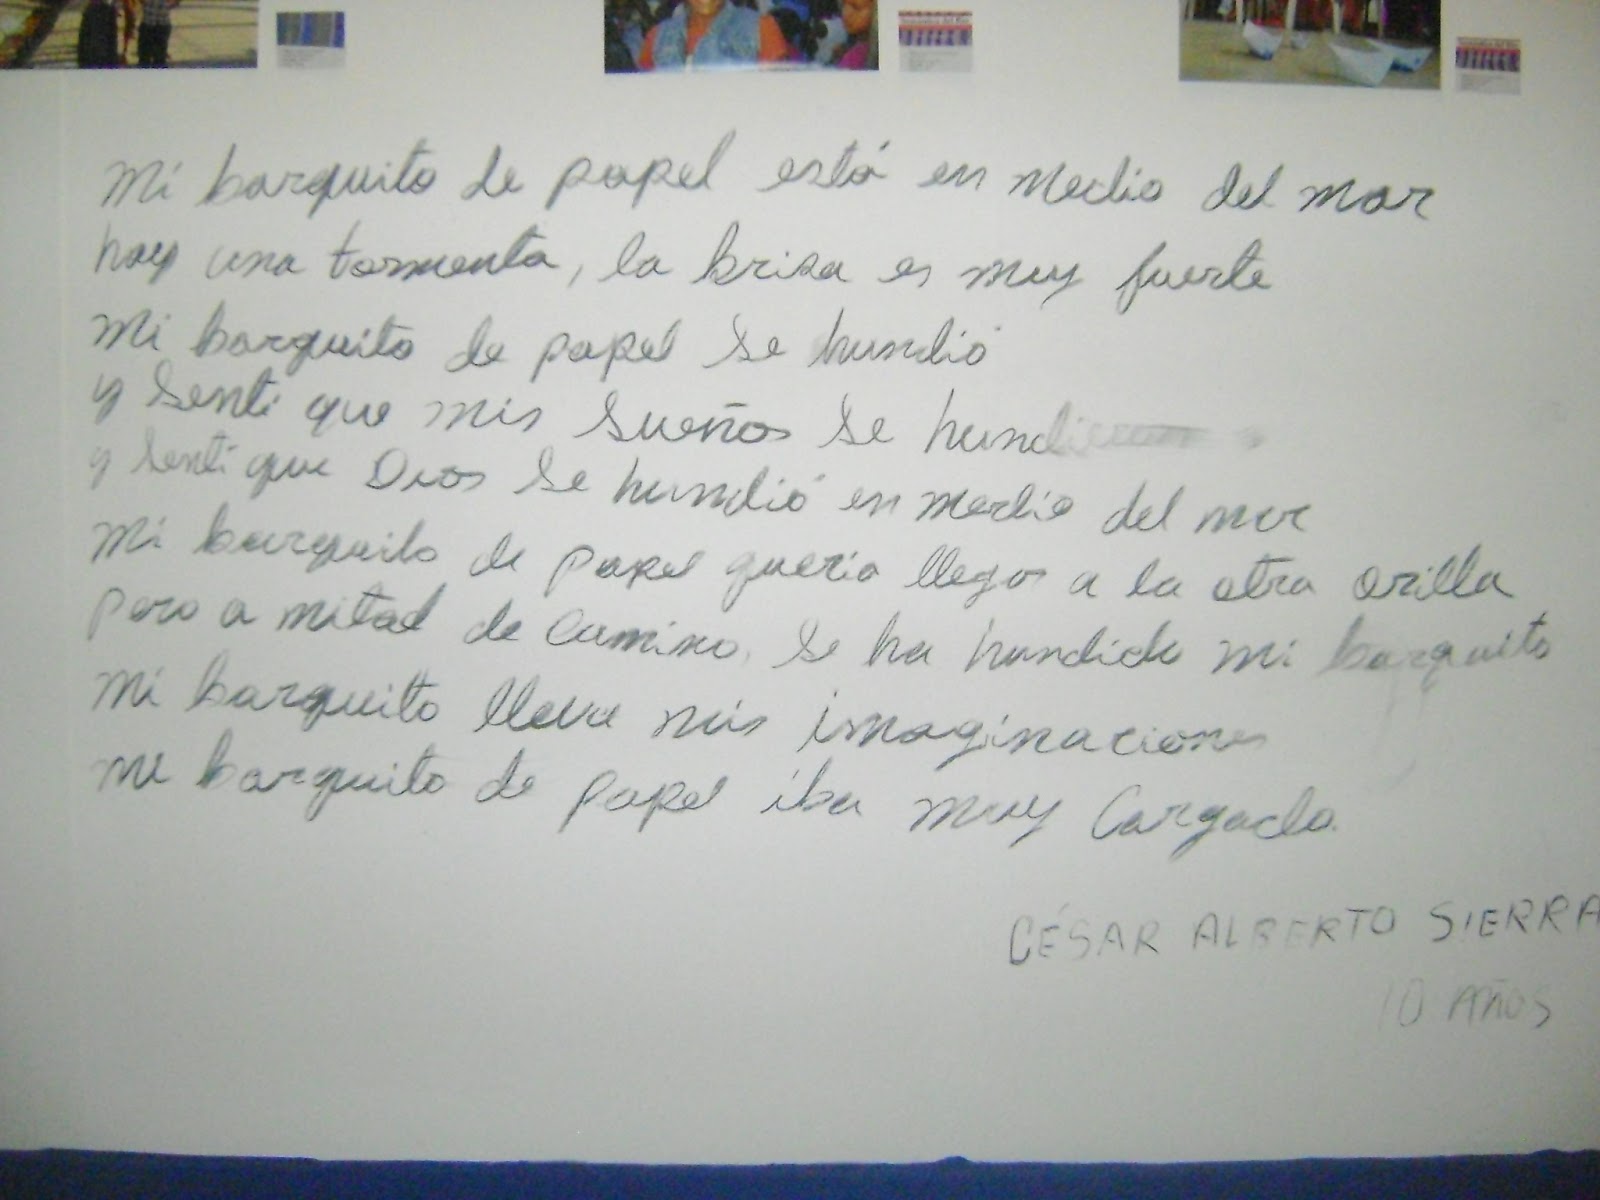 Mi barquito de papel está en medio del mar
hay una tormenta, la brisa es muy fuerte
Mi barquito de papel se hundió
y sentí que mis sueños se hundieron
y sentí que Dios se hundió en medio del mar
Mi barquito de papel quería llegar a la otra orilla
pero a mitad de camino, se ha hundido mi barquito
Mi barquito lleva mis imaginaciones
mi barquito de papel iba muy cargado.
CÉSAR ALBERTO SIERRA
10 AÑOS